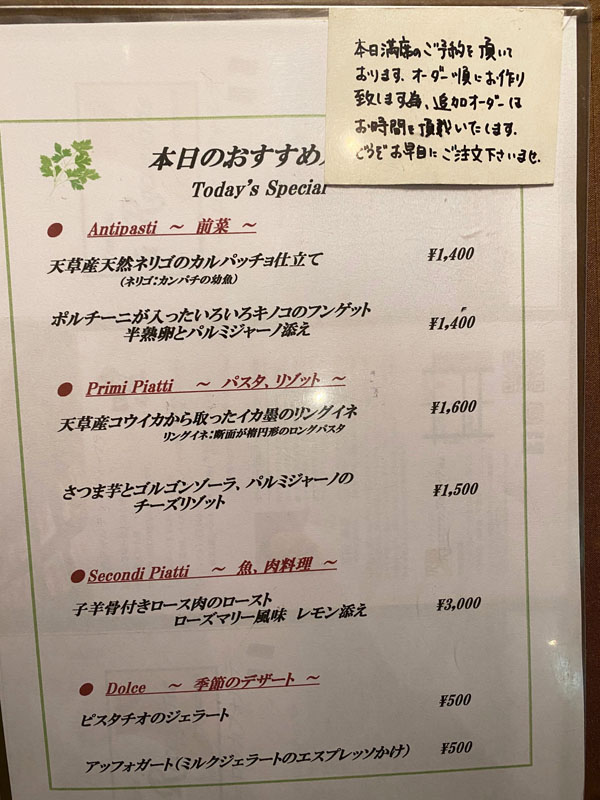 本日満席のご予約を頂いて
おります、オーダー順にお作り
致します為、追加オーダーは
お時間を頂戴いたします。
どうぞお早目にご注文下さいませ.
本日のおすすめ
Today's Special
● Antipasti ～ 前菜 ～
天草産天然ネリゴのカルパッチョ仕立て ¥1,400
(ネリゴ:カンパチの幼魚)
ポルチーニが入ったいろいろキノコのフンゲット ¥1,400
半熟卵とパルミジャーノ添え
● Primi Piatti ～ パスタ、リゾット ～
天草産コウイカから取ったイカ墨のリングイネ ¥1,600
リングイネ:断面が楕円形のロングパスタ
さつま芋とゴルゴンゾーラ、パルミジャーノの ¥1,500
チーズリゾット
● Secondi Piatti ～ 魚、肉料理 ～
子羊骨付きロース肉のロースト ¥3,000
ローズマリー風味 レモン添え
● Dolce ～ 季節のデザート ～
ピスタチオのジェラート ¥500
アッフォガート(ミルクジェラートのエスプレッソかけ) ¥500